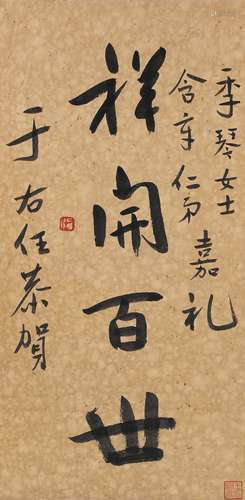 季琴女士
含章仁弟嘉礼
祥開百世
于右任恭賀